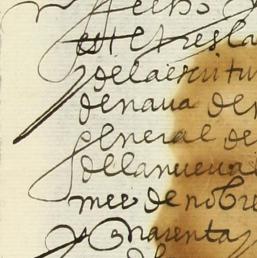 fecho
este tresla
de la escritu
de naua de
general de
de la nueua
mes de nobre
y quarenta